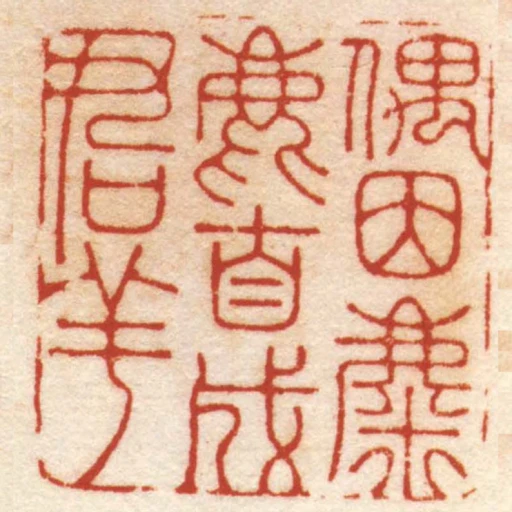 偶因麋
鹿自成
羣